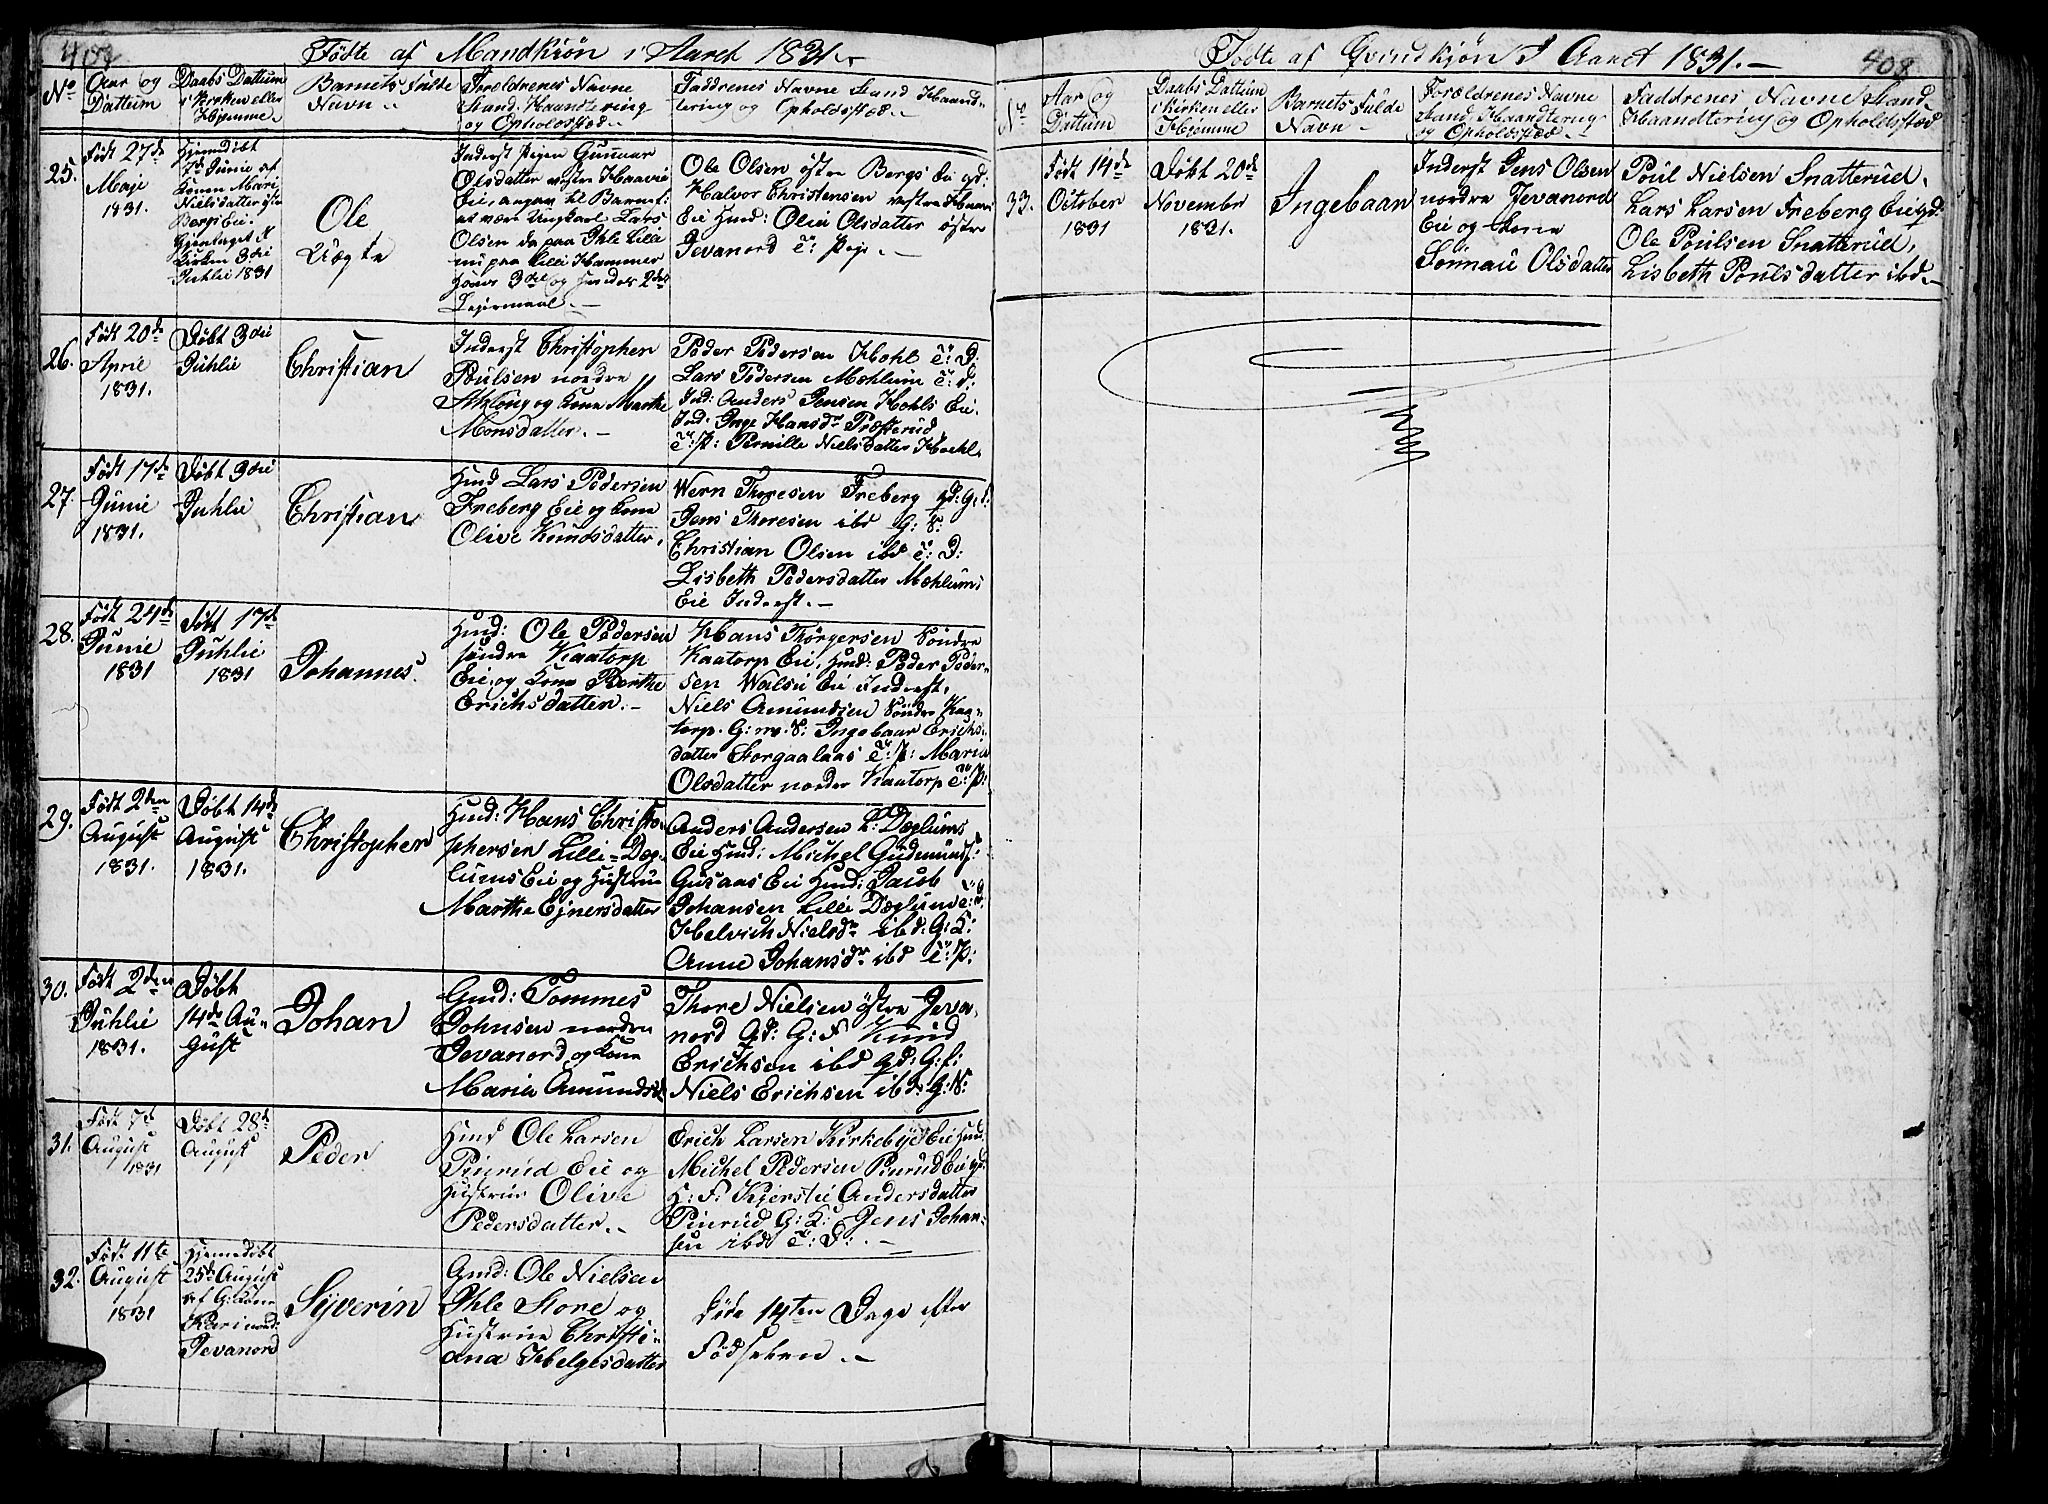 Födte af Mandkiön i Aaret 1831.
No
Aar og
Dattum
Daabs Dattum
i Kirken eller
Hjemme.
Barnets fulde
Navn
Forældrenes Navne
Stand, Haandtering
og Opholdssted
Faddrenes Navne Stand Haand-
tering og Opholdssted
25.
Født 27de
Maje
1831.
Hjemdöbt
Junie af
Konen Mari
Nielsdatter östre
Bergs Eie.
Kirken 3die
Juhlie 1831
Ole
Uægte
Inderst Pigen Gunnar
Olsdatter vestre Haavie
Eie, angav til Barnef:
at være Ungkarl Lars
Olsen da paa Ihle Lille
nu paa Lille Hammer
Hans 3die og hendes 2det
Lejermaal.
Ole Olsen östre Bergs Eie gd:
Halvor Christensen vestre
Eie Hmd: Olea Olsdatter östre
Jevanord T: Pige.
26.
Født 20de
April
1831.
Döbt 3die
Juhlie
Christian
Inderst Christopher
Poulsen nordre
og Kone Marthe
Monsdatter.
Peder Pedersen Hohl T: D:
Lars Pedersen Mæhlum T: d:
Ind: Anders Jensen Hohls Eie.
Ind. Inge Hansdr Præsterud
T: P: Pernille Nielsdatter Hoehl.
27.
Født 17de
Junie
1831.
Döbt 3die
Juhlie
Christian
Hmd Lars Pedersen
Freberg Eie og Kone
Olive Knudsdatter.
Wern Thoresen Freberg gd: G: f:
Jens Thoresen ibd G: S:
Christian Olsen ibd T: D:
Lisbeth Pedersdatter Mæhlums
Eie Inderst.
28.
Født 24de
Junie
1831
Döbt 17de
Juhlie
1831
Johannes.
Hmd: Ole Pedersen
söndre Kaatorp
Eie, og Kone Berthe
Erichsdatter.
Hans Thorgersen Söndre
Kaatorp Eie, Hmd: Peder Peder-
sen Walsie Eie Inderst,
Niels Amundsen Söndre Kaa-
torp. G: m. S: Ingebaar Erichs-
datter Storgaalaas T: P: Maria
Olsdatter nordre Kaatorp T: P:
29.
Født 2den
August
1831.
Döbt 14de
August
1831.
Christopher
Hmd: Hans Christo-
phersen Lille Dæg-
lums Eie og Hustrue
Marthe Ejnersdatter
Anders Andersen L: Dæglums
Eie Hmd: Michel Gudmunds:
Gusaas Eie Hmd: Jacob
Johansen Lille Dæglum T: D.
Helvich Nielsdr ibd: G: K:
Anne Johansdr ibd T: P:
30.
Født 2den
Juhlie
1831.
Döbt
14de Au-
gust
Johan
Gmd: Tommes
Johnsen nordre
Jevanord og Kone
Maria Amundsdr
Thore Nielsen östre Jeva-
nord Gd: G: F Knud
Erichsen ibd gd: G: f:
Niels Erichsen ibd: G: S:
31.
Født 7de
August
1831
Döbt 28de
August
Peder
Hmd Ole Larsen
Pinrud Eie og
Hustrue Olive
Pedersdatter.
Erich Larsen Kirkebye Eie Hmd.
Michel Pedersen Pinrud Eie gd:
H: F: Kjerstie Andersdatter
Pinrud G: K: Jens Johan-
sen ibd T: D:
32.
Født 11te
August
1831
Hjemdöbt
25de August
af G: Kone
Kari nord:
Jevanord
Syverin
Gmd: Ole Nielsen
Ihle Store og
Hustrue Christi-
ana Helgesdatter
Döde 14ten Dage efter
Födselen.
408
Födte af Qvindkjön I Aaret 1831.
No
Aar og
Dattum
Daabs Dattum
i Kirken eller
Hjemme
Barnets Fulde
Navn
Forældrenes Navne
Stand, Haandtering
og Opholdssted
Faddrenes Navne Stand
Haandtering og Opholdssted
33.
Født 14de
October
1831
Döbt 20de
Novembr
1831.
Ingebaar
Inderst Jens Olsen
nordre Jevanord
Eie og Kone
Sönnau Olsdatter
Poul Nielsen Snatterud,
Lars Larsen Freberg Eie gd.
Ole Poulsen Snatterud,
Lisbeth Poulsdatter ibd